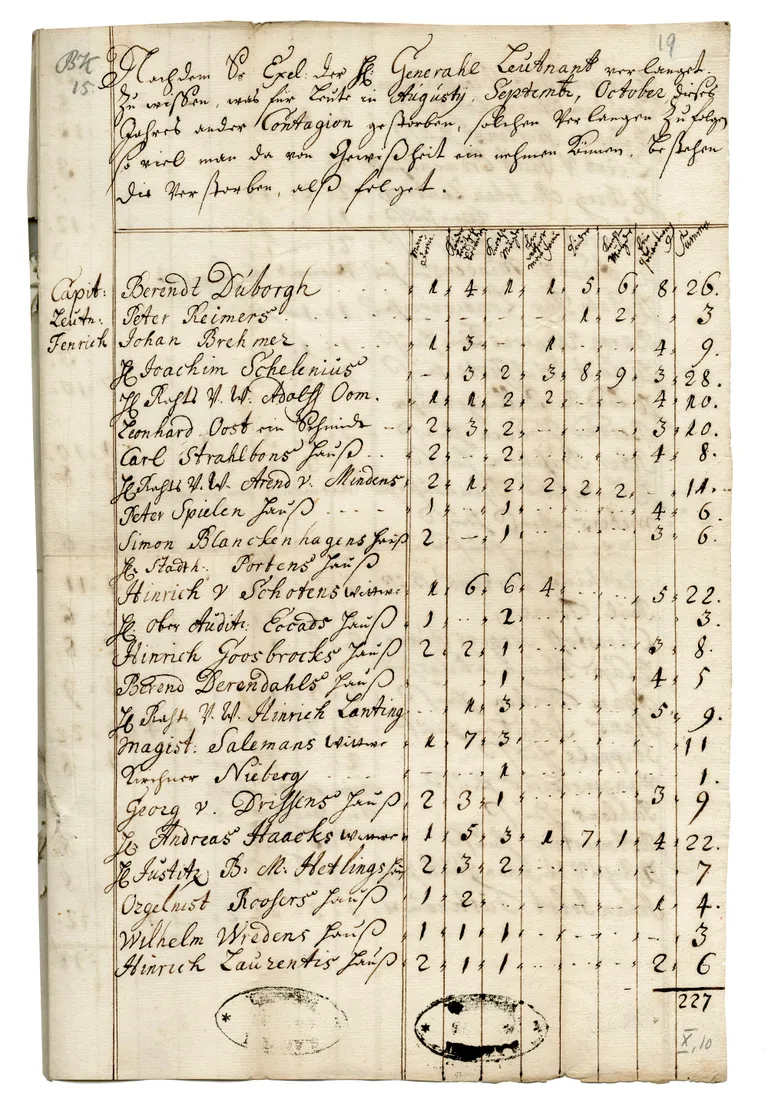 BK
15
19
Nachdem Sr Exel: der H: Generahl Leutnant verlanget.
Zu wissen, was für Leute in Augustÿ, Septembr, October dieses
Jahres ander Contagion gestorben, solchen Verlangen Zu folgen
so viel man da von Gewißheit ein nehmen können, bestehen
die Verstorben, alß folget.
Summa
Capit: Berendt Düborgh 1 4 1 1 5 6 8 26.
Leutn: Peter Reimers 1 2 3
Fenrich Johan Brehmer 1 3 1 4 9.
H Joachim Schelenius 3 2 3 8 9 3 28.
H Rahts V. W. Adolff Oom. 1 1 2 2 4 10.
Leonhard Oost ein Schmidt 2 3 2 3 10.
Carl Strahlbons Hauß 2 2 4 8.
H Rahts V. W. Arend v. Mindens 2 1 2 2 2 2 11.
Peter Spielen Hauß 1 1 4 6
Simon Blanckenhagens Hauß 2 1 3 6.
H: Stadth: Portens Hauß
Hinrich v Schotens Wittwe 1 6 6 4 5 22.
H Ober Audit: Eccads Hauß 1 2 3.
Hinrich Goosbrocks Hauß 2 2 1 3 8.
Berend Derendahls Hauß 1 4 5
H Raht V. W. Hinrich Lanting 1 3 5 9.
Magist: Salemans Wittwe 1 7 3 11
Kirchner Nieberg 1 1.
Georg v. Drissens Hauß 2 3 1 3 9
H: Andreas Haacks Wittwe 1 5 3 1 7 1 4 22.
H Justitz B. M. Hetlings 2 3 2 7
Orgelnist Roosers Hauß 1 2 1 4.
Wilhelm Wredens Hauß 1 1 1 3
Hinrich Laurentis Hauß 2 1 1 2 6
227
X, 10